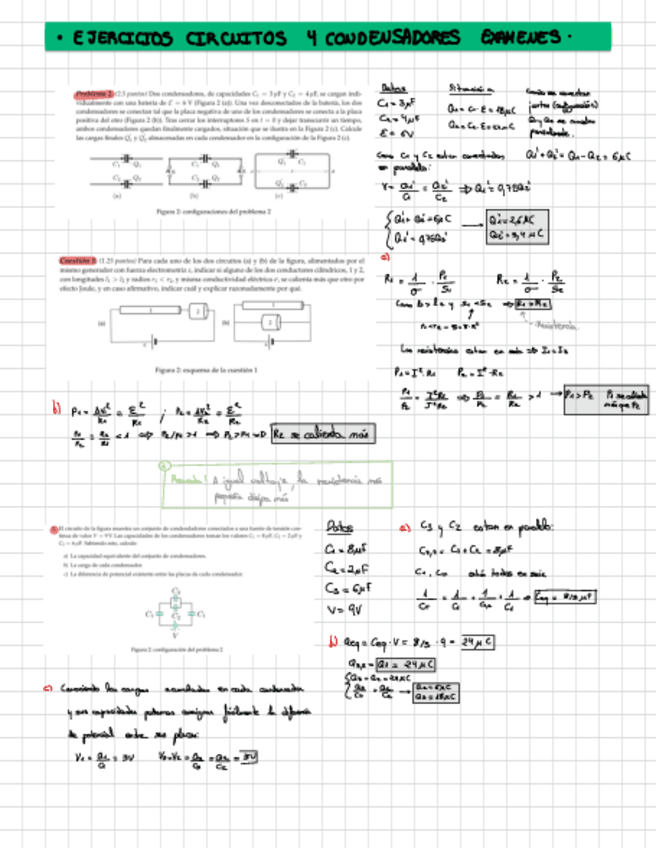 · EJERCICIOS CIRCUITOS Y CONDENSADORES EXAMENES ·
Problema 2 (2.5 puntos) Dos condensadores, de capacidades C₁ = 3 μF y C₂ = 4 μF, se cargan indi-
vidualmente con una batería de ℰ = 6 V (Figura 2 (a)). Una vez desconectados de la batería, los dos
condensadores se conectan tal que la placa negativa de uno de los condensadores se conecta a la placa
positiva del otro (Figura 2 (b)). Tras cerrar los interruptores S en t = 0 y dejar transcurrir un tiempo,
ambos condensadores quedan finalmente cargados, situación que se ilustra en la Figura 2 (c). Calcule
las cargas finales Q₁' y Q₂' almacenadas en cada condensador en la configuración de la Figura 2 (c).
(a) (b) (c)
Figura 2: configuraciones del problema 2
Datos
C₁ = 3μF
C₂ = 4μF
ℰ = 6V
Q₁' + Q₂' = Q₁ - Q₂ = 6μC
en paralelo:
V = Q₁'/C₁ = Q₂'/C₂ ⇒ Q₁' = 0,75Q₂'
Q₁' + Q₂' = 6μC
Q₁' = 0,75Q₂'
Q₁' = 2,6μC
Q₂' = 3,4μC
Cuestión 1 (1.25 puntos) Para cada uno de los dos circuitos (a) y (b) de la figura, alimentados por el
mismo generador con fuerza electromotriz ε, indicar si alguno de los dos conductores cilíndricos, 1 y 2,
con longitudes l₁ > l₂ y radios r₁ < r₂, y misma conductividad eléctrica σ, se calienta más que otro por
efecto Joule, y en caso afirmativo, indicar cuál y explicar razonadamente por qué.
(a) (b)
Figura 2: esquema de la cuestión 1
a)
Las resistencias estan en serie ⇒ I₁ = I₂
P₁ = I²·R₁ P₂ = I²·R₂
P₁/P₂ = I²R₁/I²R₂ ⇒ P₁/P₂ = R₁/R₂ > 1 → P₁ > P₂ P₁ se calienta
más que P₂
b)
R₂ se calienta más
Recuerda! A igual voltaje, la resistencia más
pequeña disipa más
El circuito de la figura muestra un conjunto de condensadores conectados a una fuente de tensión con-
tinua de valor V = 9 V. Las capacidades de los condensadores toman los valores C₁ = 8 μF, C₂ = 2 μF y
C₃ = 6 μF. Sabiendo esto, calcule
a) La capacidad equivalente del conjunto de condensadores.
b) La carga de cada condensador.
c) La diferencia de potencial existente entre las placas de cada condensador.
Figura 2: configuración del problema 2
Datos
C₁ = 8μF
C₂ = 2μF
C₃ = 6μF
V = 9V
a) C₃ y C₂ estan en paralelo:
C₂,₃ = C₃ + C₂ = 8μF
Ceq = 8/3 μF
b) Qeq = Ceq · V = 8/3 · 9 = 24μC
Q₂,₃ = Q₁ = 24μC
Q₂ = 6μC
Q₃ = 18μC
c) Conociendo las cargas acumuladas en cada condensador
y sus capacidades podemos averiguar fácilmente la diferencia
de potencial entre sus placas:
V₁ = Q₁/C₁ = 3V V₃ = V₂ = Q₃/C₃ = Q₂/C₂ = 3V